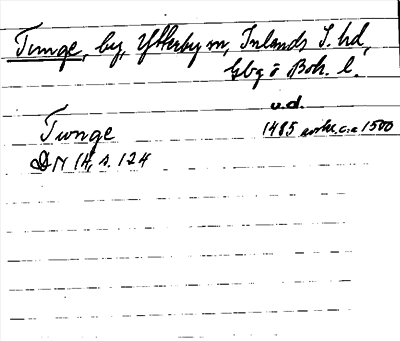 Tunge, by, Ytterby sn, Inlands S. hd,
Gbg o Boh. l.
u.d.
Tunge 1485 avskr. c:a 1500
DN 14, s. 124